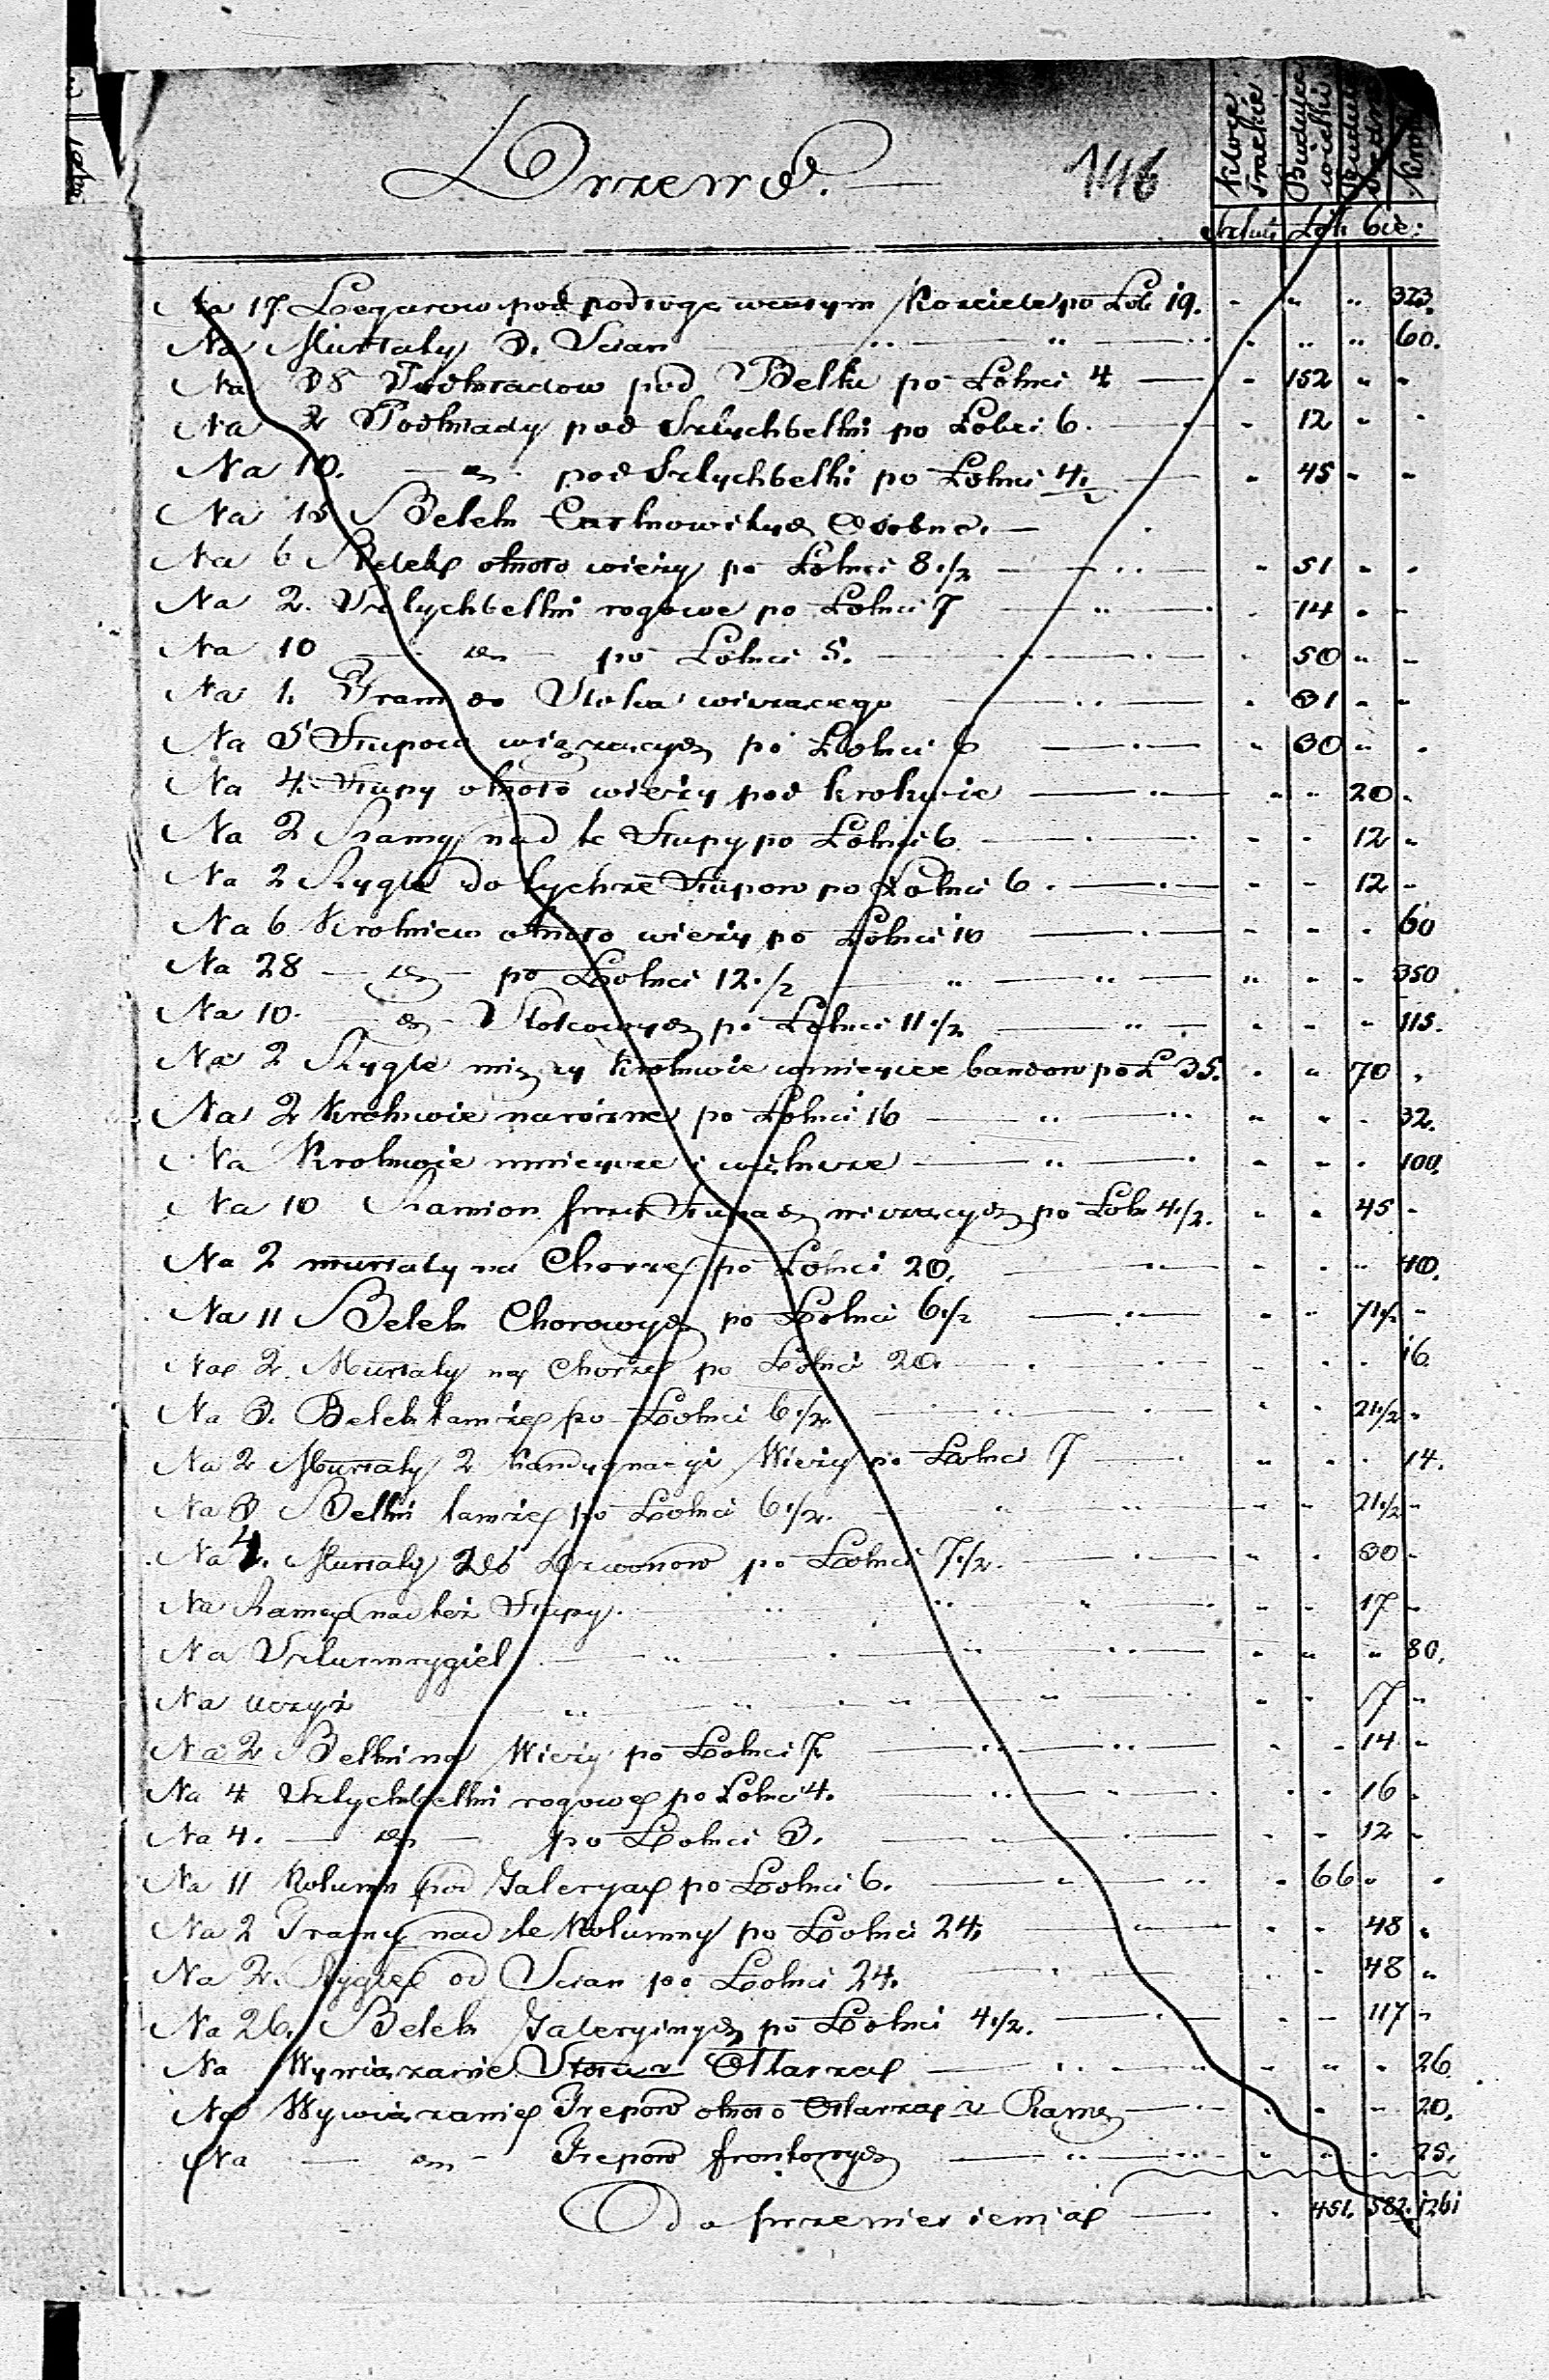 Drzewo. 146
Kloce Trackie Budulec wielki Budul Średni Krokw
Sztuk Łok bie:
Na 17. Legarow pod podłogę w całym Kościele po Łok 19. 323.
Na Murłaty D. Scian 60.
Na 38 Podkładow pod Belki po Łokci 4 152
Na 2 Podkłady pod Sztychbelki po Łokci 6. 12
Na 10. dto pod Sztychbelki po Łokci 4 1/2 45
Na 15 Belek Całkowitych Osobne.
Na 6 Belek około wieży po Łokci 8 1/2 51
Na 2. Sztychbelki rogowe po Łokci 7 14
Na 10 dto po Łokci 5. 50
Na 1. Tram do Stolca wiszącego 31
Na 5 Słupow wiszących po Łokci 6 30
Na 4. Słupy około wieży pod krokwie 20
Na 2 Ramy nad te Słupy po Łokci 6 12
Na 2 Rygle do tychże Słupow po Łokci 6. 12
Na 6 Krokwiew około wieży po Łokci 10 60
Na 28 dto po Łokci 12 1/2 350
Na 10. dto Stolcowych po Łokci 11 1/2 115.
Na 2 Rygle między krokwie w mieysce bantow po Ł 35. 70
Na 2 Krokwie narożne po Łokci 16 32.
Na Krokwie mnieysze i większe 100.
Na 10 Ramion przy Słupach wiszących po Łok 4 1/2. 45
Na 2 murłaty na Chorze po Łokci 20. 40.
Na 11 Belek Chorowych po Łokci 6 1/2 71 1/2
Na 2. Murłaty na Chorze po Łokci 20. 16
Na 3. Belek tamże po Łokci 6 1/2. 21 1/2
Na 2 Murłaty 2 Kondygnacyi Wieży po Łokci 7 14.
Na 3 Belki tamże po Łokci 6 1/2. 21 1/2
Na 4. Murłaty do Dzwonow po Łokci 7 1/2. 30
Na Ramę nad też Słupy. 17
Na Szturmrygiel 80.
Na 7
Na 2 Belki na Wieży po Łokci 7. 14
Na 4 Sztychbelki rogowe po Łokci 4. 16
Na 4. dto po Łokci 3. 12
Na 11 Kolumn pod Galeryą po Łokci 6. 66
Na 2 Tramy nad te Kolumny po Łokci 24. 48
Na 2. Rygle od Scian po Łokci 24. 48
Na 26. Belek Galeryinych po Łokci 4 1/2. 117
Na Wywiązanie Stołu z Ołtarza 26
Na Wywiązanie Trepow około Ołtarza z Ramą 20.
Na dto Trepow frontowych 25.
Do przeniesienia 451. 582. 1261